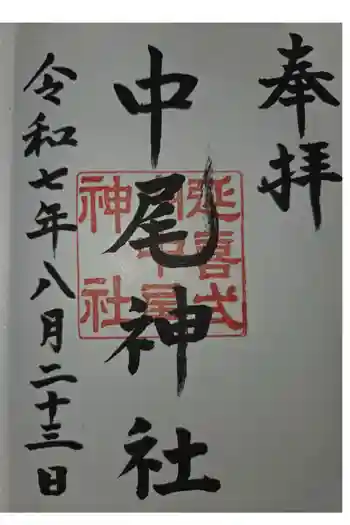 奉拝
中尾神社
延喜式
中尾
神社
令和七年八月二十三日